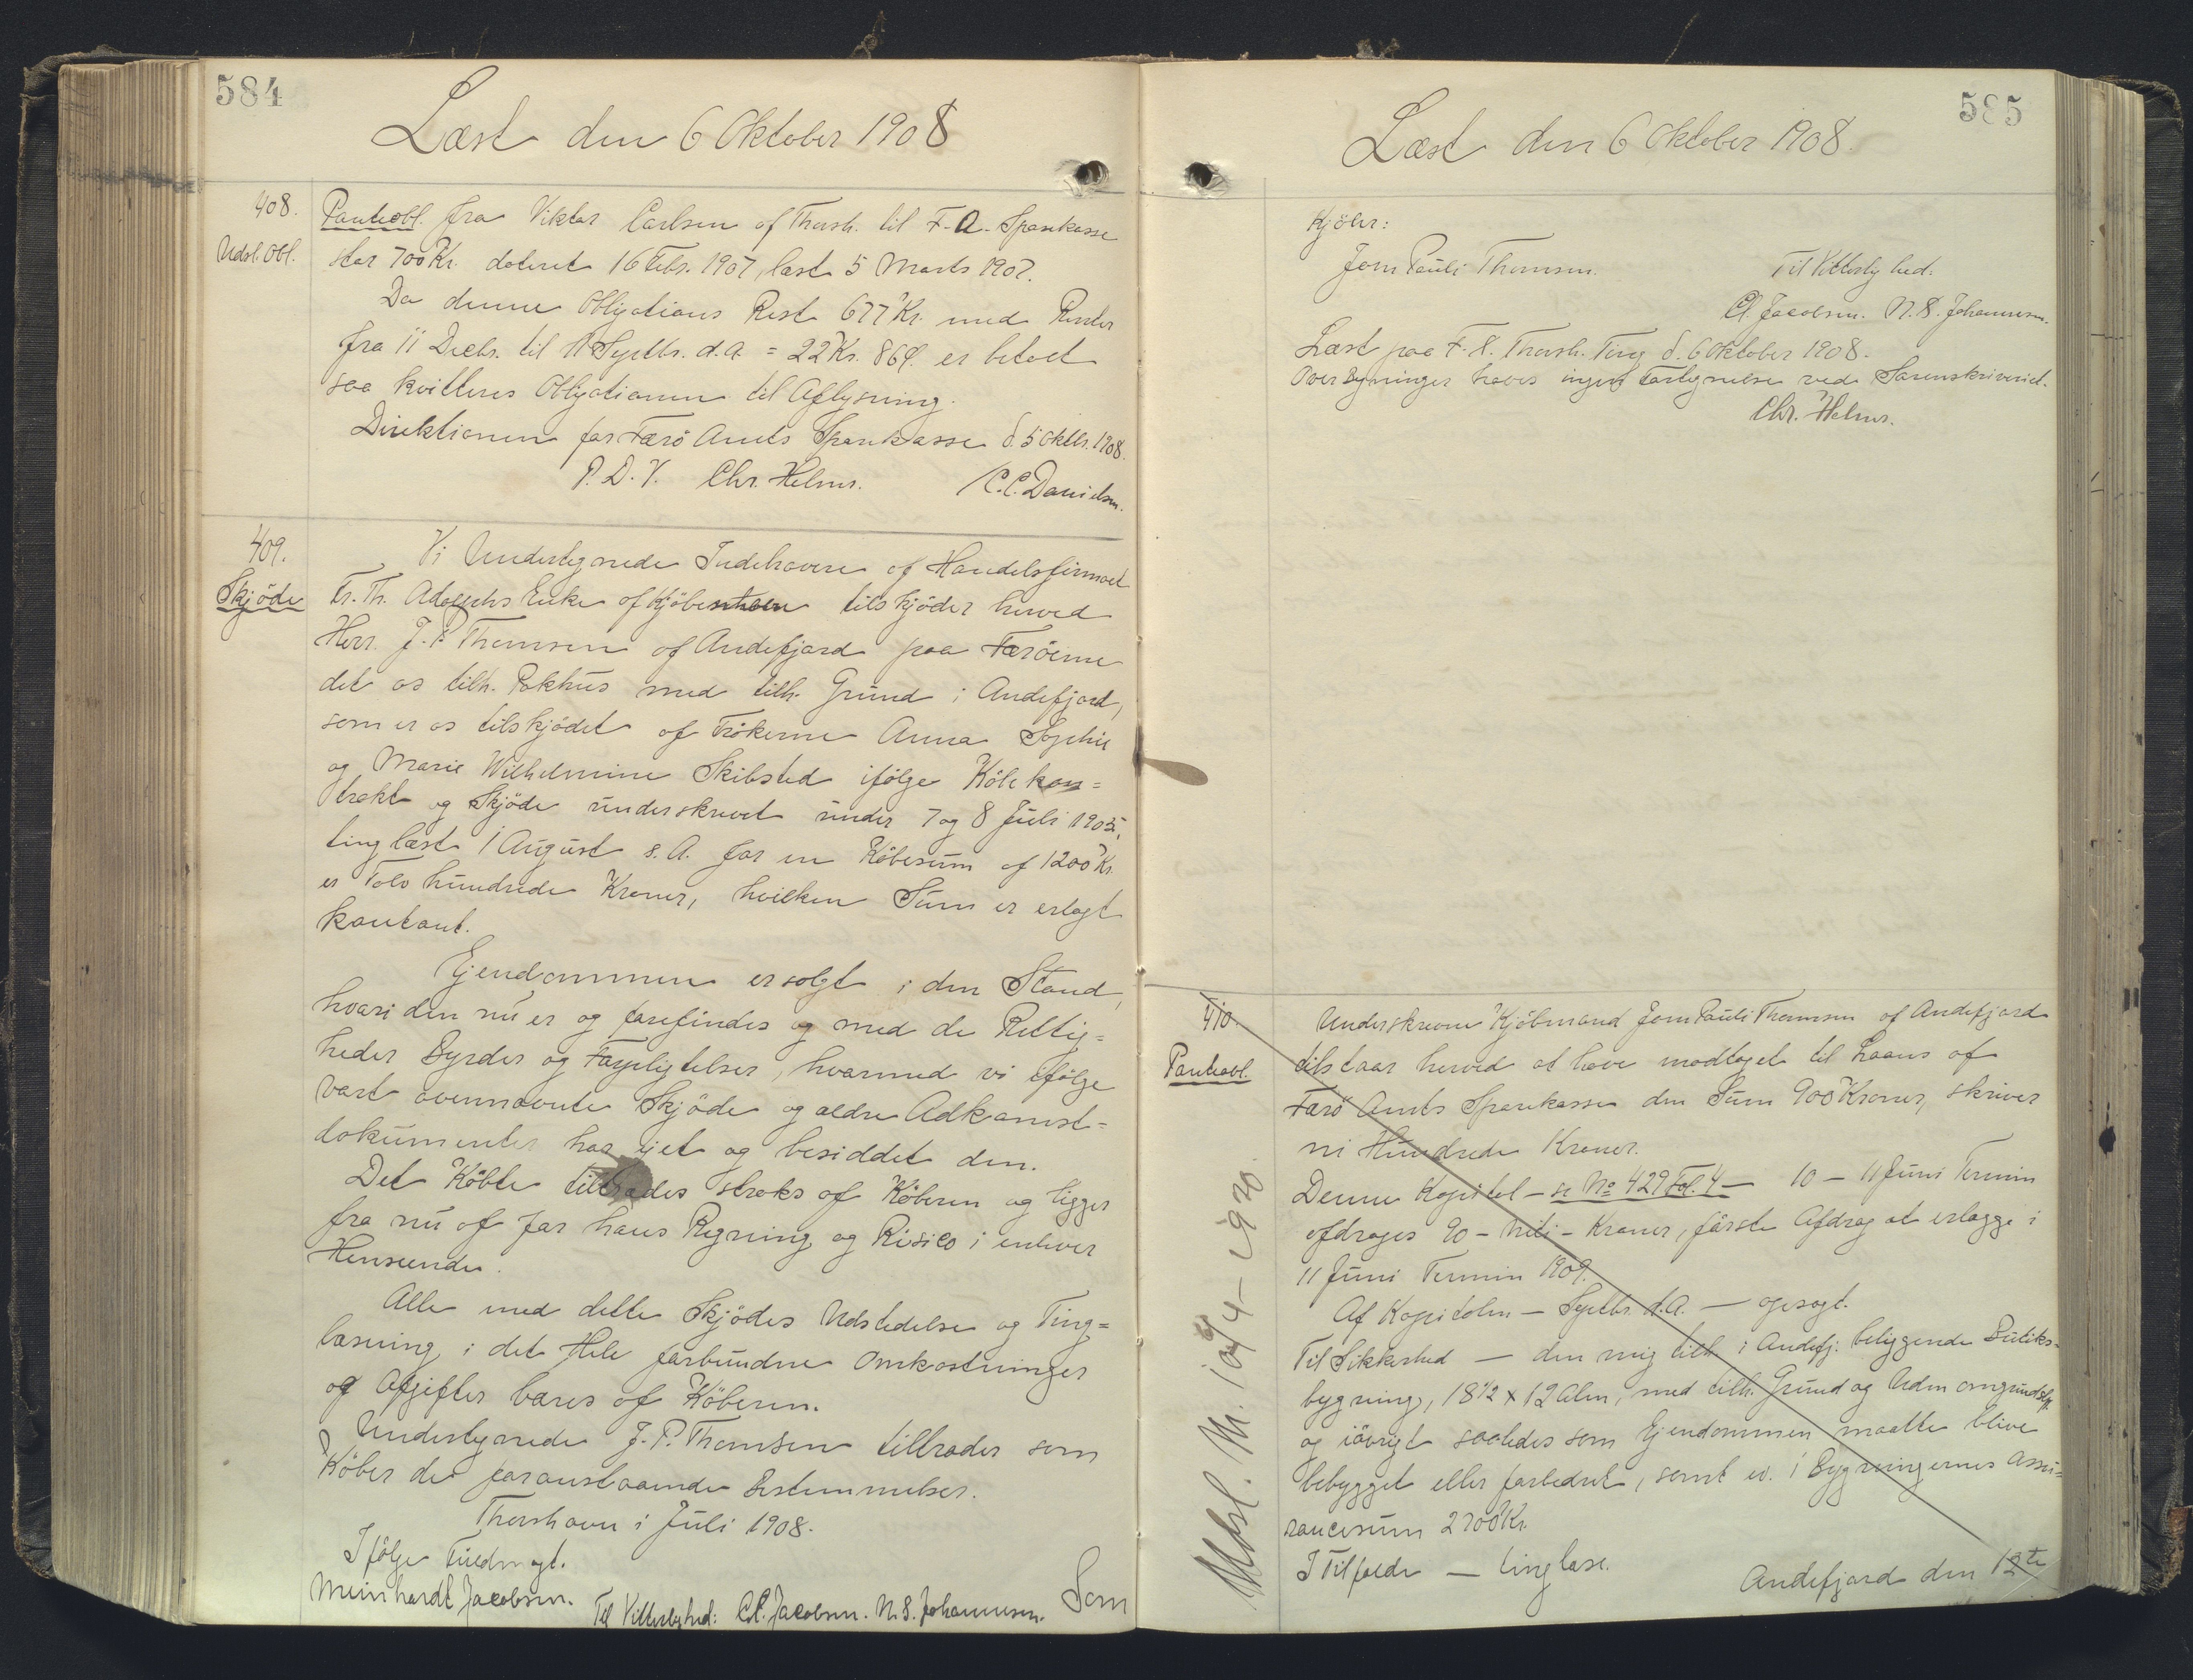 584
Læst den 6 Oktober 1908
408.
Udsl. Obl.
Panteobl. fra Viktor Carlsen af Thorsh. til F. A. Sparekasse
stor 700 Kr. dateret 16 Febr. 1907, læst 5 Marts 1907.
Da denne Obligations Rest 677 Kr. med Renter
fra 11 Decbr. til 11 Septbr. d. A. = 22 Kr. 86 Ø. er betalt
saa kvitteres Obligationen til Aflysning.
Direktionen for Færö Amts Sparekasse d. 5 Oktbr. 1908.
P. D. V. Chr. Helms. C. C. Danielsen.
409.
Skjöde
Vi Undertegnede Indehavere af Handelsfirmaet
Fr. Th. Adolphs Enke af Kjöbenhavn tilskjöder herved
Herr. J. P. Thomsen af Andefjord paa Færöerne
det os tilh. Pakhus med tilh. Grund i Andefjord,
som er os tilskjödet af Frökerne Anna Sophie
og Marie Wilhelmine Skibsted ifölge Köbekon=
trakt og Skjöde underskrevet under 7 og 8 Juli 1905,
tinglæst 1 August s. A. for en Köbesum af 1200 Kr.
er Tolv hundrede Kroner, hvilken Sum er erlagt
kontant.
Ejendommen er solgt i den Stand,
hvori den nu er og forefindes og med de Rettig=
heder Byrder og Forpligtelser, hvormed vi ifölge
vort ovennævnte Skjöde og ældre Adkomst=
dokumenter har ejet og besiddet den.
Det Köbte tiltrædes straks af Köberen og ligger
fra nu af for hans Regning og Risico i enhver
Henseende.
Alle med dette Skjödes Udstedelse og Ting=
læsning i det Hele forbundne Omkostninger
og Afgifter bæres af Köberen.
Undertegnede J. P. Thomsen tiltræder som
Köber de foranstaaende Bestemmelser.
Thorshavn i Juli 1908.
Ifölge Fuldmagt.
Meinhardt Jacobsen.
Til Vitterlighed: Cl. Jacobsen. N. S. Johannesen.
Som
585
Læst den 6 Oktober 1908.
Kjöber:
Joen Pauli Thomsen.
Til Vitterlighed:
Cl. Jacobsen. N. S. Johannesen.
Læst paa F. H. Thorsh. Ting d. 6 Oktober 1908.
Over Bygninger haves ingen Fortegnelse ved Sorenskriveriet.
Chr. Helms.
410.
Panteobl.
Underskrevne Kjöbmand Joen Pauli Thomsen af Andefjord
tilstaar herved at have modtaget til Laans af
Færö Amts Sparekasse den Sum 900 Kroner, skriver
ni Hundrede Kroner.
Denne Kapital - se No 429 Fol. 4 - 10 - 11 Juni Termin
afdrages 90 - Niti - Kroner, förste Afdrag at erlægge i
11 Juni Termin 1909.
Af Kapitalen - Septbr. d. A. - opsagt.
Til Sikkerhed - den mig tilh. i Andefj. beliggende Butiks-
bygning, 18 1/2 x 12 Alen, med tilh. Grund og Uden
og iövrigt saaledes som Ejendommen maatte blive
bebygget eller forbedret, samt ev. i Bygningernes Assu=
rancesum 2700 Kr.
I Tilfælde - tinglæse.
Andefjord den 12te
Udsl. M. 10/4-1930.